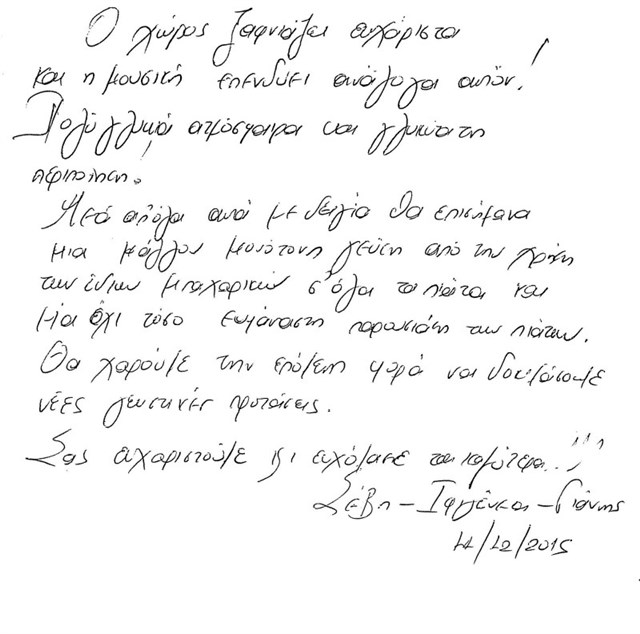 Ο χώρος ξαφνιάζει ευχάριστα
και η μουσική επενδύει ανάλογα αυτόν!
Πολύ γλυκιά ατμόσφαιρα και γλυκύτατη
περιποίηση.
Μετά απ' όλα αυτά με δειλία θα επισήμανα
μια μάλλον μονότονη γεύση από την χρήση
των ίδιων μπαχαρικών σ' όλα τα πιάτα και
μια όχι τόσο ευφάνταστη παρουσίαση των πιάτων.
Θα χαρούμε την επόμενη φορά να δοκιμάσουμε
νέες γευστικές προτάσεις.
Σας ευχαριστούμε κι ευχόμαστε τα καλύτερα..!!!
Σέβη - - Γιάννης
11/12/2015